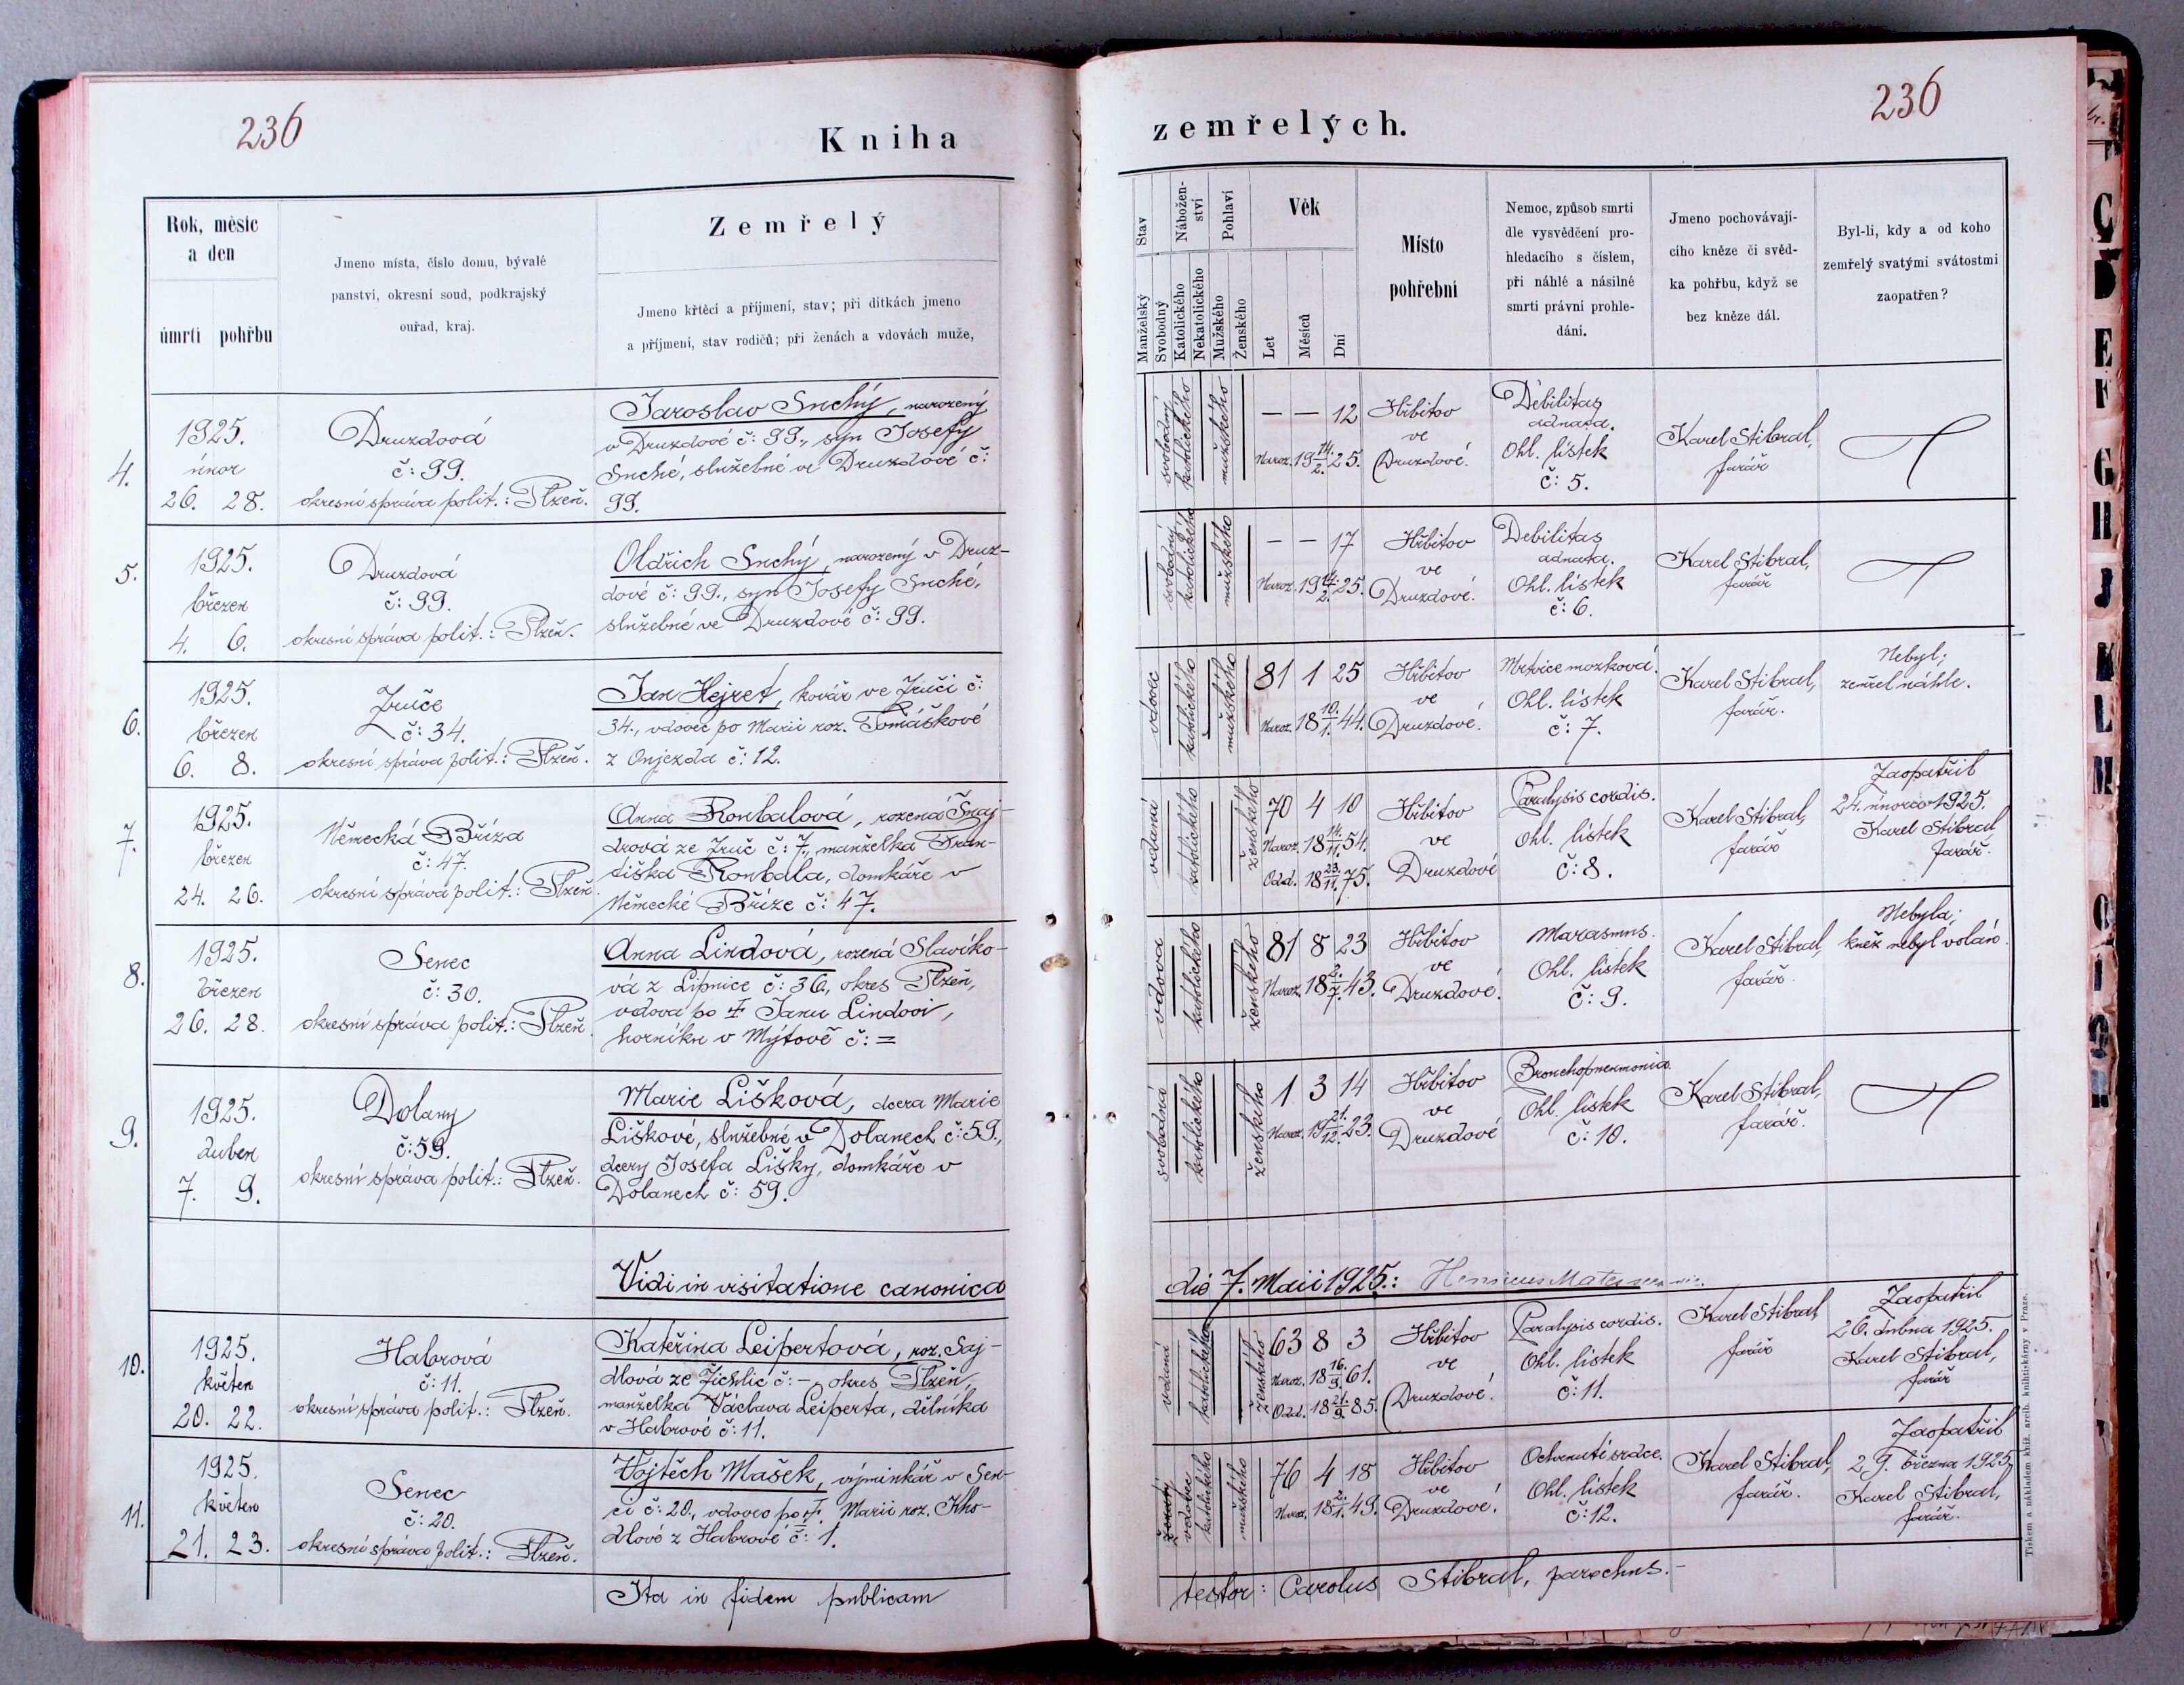 236
Kniha
Rok, měsíc
a den
úmrtí pohřbu
Jmeno místa, číslo domu, bývalé
panství, okresní soud, podkrajský
ouřad, kraj.
Zemřelý
Jmeno křtěcí a příjmení, stav; při dítkách jmeno
a příjmení, stav rodičů; při ženách a vdovách muže,
4.
1925.
únor
26. 28.
Druzdová
č: 99.
okresní správa polit.: Plzeň.
Jaroslav Suchý, narozený
v Druzdové č: 99., syn Josefy
Suché, služebné ve Druzdové č:
99.
5.
1925.
březen
4. 6.
Druzdová
č: 99.
okresní správa polit.: Plzeň.
Oldřich Suchý, narozený v Druz-
dové č: 99., syn Josefy Suché,
služebné ve Druzdové č: 99.
6.
1925.
březen
6. 8.
Zruče
č: 34.
okresní správa polit.: Plzeň.
Jan Hejret, kovář ve Zruči č:
34., vdovec po Marii roz. Tomáškové
z Onjezda č: 12.
7.
1925.
březen
24. 26.
Německá Bříza
č: 47.
okresní správa polit.: Plzeň.
Anna Roubalová, rozená Šnaj-
drová ze Zruč č: 7., manželka Fran-
tiška Roubala, domkáře v
Německé Bříze č: 47.
8.
1925.
březen
26. 28.
Senec
č: 30.
okresní správa polit.: Plzeň.
Anna Lindová, rozená Slavíko-
vá z Lipnice č: 36., okres Plzeň,
vdova po † Janu Lindovi,
horníku v Mýtově č: =
9.
1925.
duben
7. 9.
Dolany
č: 59.
okresní správa polit.: Plzeň.
Marie Lišková, dcera Marie
Liškové, služebné v Dolanech č: 59.,
dcery Josefa Lišky, domkáře v
Dolanech č: 59.
Vidi in visitatione canonica
10.
1925.
květen
20. 22.
Habrová
č: 11.
okresní správa polit.: Plzeň.
Kateřina Leipertová, roz. Saj-
dlová ze Žichlic č: -, okres Plzeň,
manželka Václava Leiperta, dělníka
v Habrové č: 11.
11.
1925.
květen
21. 23.
Senec
č: 20.
okresní správa polit.: Plzeň.
Vojtěch Mašek, výminkář v Sen-
ci č: 20., vdovec po †. Marii roz. Kho-
dlové z Habrové č: 1.
Ita in fidem publicam
236
zemřelých.
Stav
Manželský
Svobodný
Nábožen-
ství
Katolického
Nekatolického
Pohlaví
Mužského
Ženského
Věk
Let
Měsíců
Dní
Místo
pohřební
Nemoc, způsob smrti
dle vysvědčení pro-
hledacího s číslem,
při náhlé a násilné
smrti právní prohle-
dání.
Jmeno pochovávají-
cího kněze či svěd-
ka pohřbu, když se
bez kněze dál.
Byl-li, kdy a od koho
zemřelý svatými svátostmi
zaopatřen?
svobodný
katolického
mužského
— — 12
Naroz. 19 14./2. 25.
Hřbitov
ve
Druzdové.
Debilitas
adnata.
Ohl. lístek
č: 5.
Karel Stibral,
farář
svobodný
katolického
mužského
— — 17
Naroz. 19 14./2. 25.
Hřbitov
ve
Druzdové.
Debilitas
adnata.
Ohl. lístek
č: 6.
Karel Stibral,
farář
vdovec
katolického
mužského
81 1 25
Naroz. 18 10./1. 44.
Hřbitov
ve
Druzdové.
Mrtvice mozková.
Ohl. lístek
č: 7.
Karel Stibral,
farář.
Nebyl;
zemřel náhle.
vdaná
katolického
ženského
70 4 10
Naroz. 18 14./11. 54.
Odd. 18 23./11. 75.
Hřbitov
ve
Druzdové
Paralysis cordis.
Ohl. lístek
č: 8.
Karel Stibral,
farář
Zaopatřil
24. února 1925.
Karel Stibral,
farář.
vdova
katolického
ženského
81 8 23
Naroz. 18 2./7. 43.
Hřbitov
ve
Druzdové.
Marasmus.
Ohl. lístek
č: 9.
Karel Stibral,
farář.
Nebyla;
kněz nebyl volán.
svobodná
katolického
ženského
1 3 14
Naroz. 19 21./12. 23.
Hřbitov
ve
Druzdové
Bronchopneumonia.
Ohl. lístek
č: 10.
Karel Stibral,
farář.
die 7. Maii 1925.: Henricus
vdaná
katolického
ženského
63 8 3
Naroz. 18 16./9. 61.
Odd. 18 21./9. 85.
Hřbitov
ve
Druzdové.
Paralysis cordis.
Ohl. lístek
č: 11.
Karel Stibral,
farář
Zaopatřil
26. dubna 1925.
Karel Stibral,
farář
ženatý
vdovec
katolického
mužského
76 4 18
Naroz. 18 2./1. 49.
Hřbitov
ve
Druzdové.
Ochrnutí srdce.
Ohl. lístek
č: 12.
Karel Stibral,
farář.
Zaopatřil
29. března 1925,
Karel Stibral,
farář.
testor: Carolus Stibral, parochus.-
Tiskem a nákladem kníž. arcib. knihtiskárny v Praze.